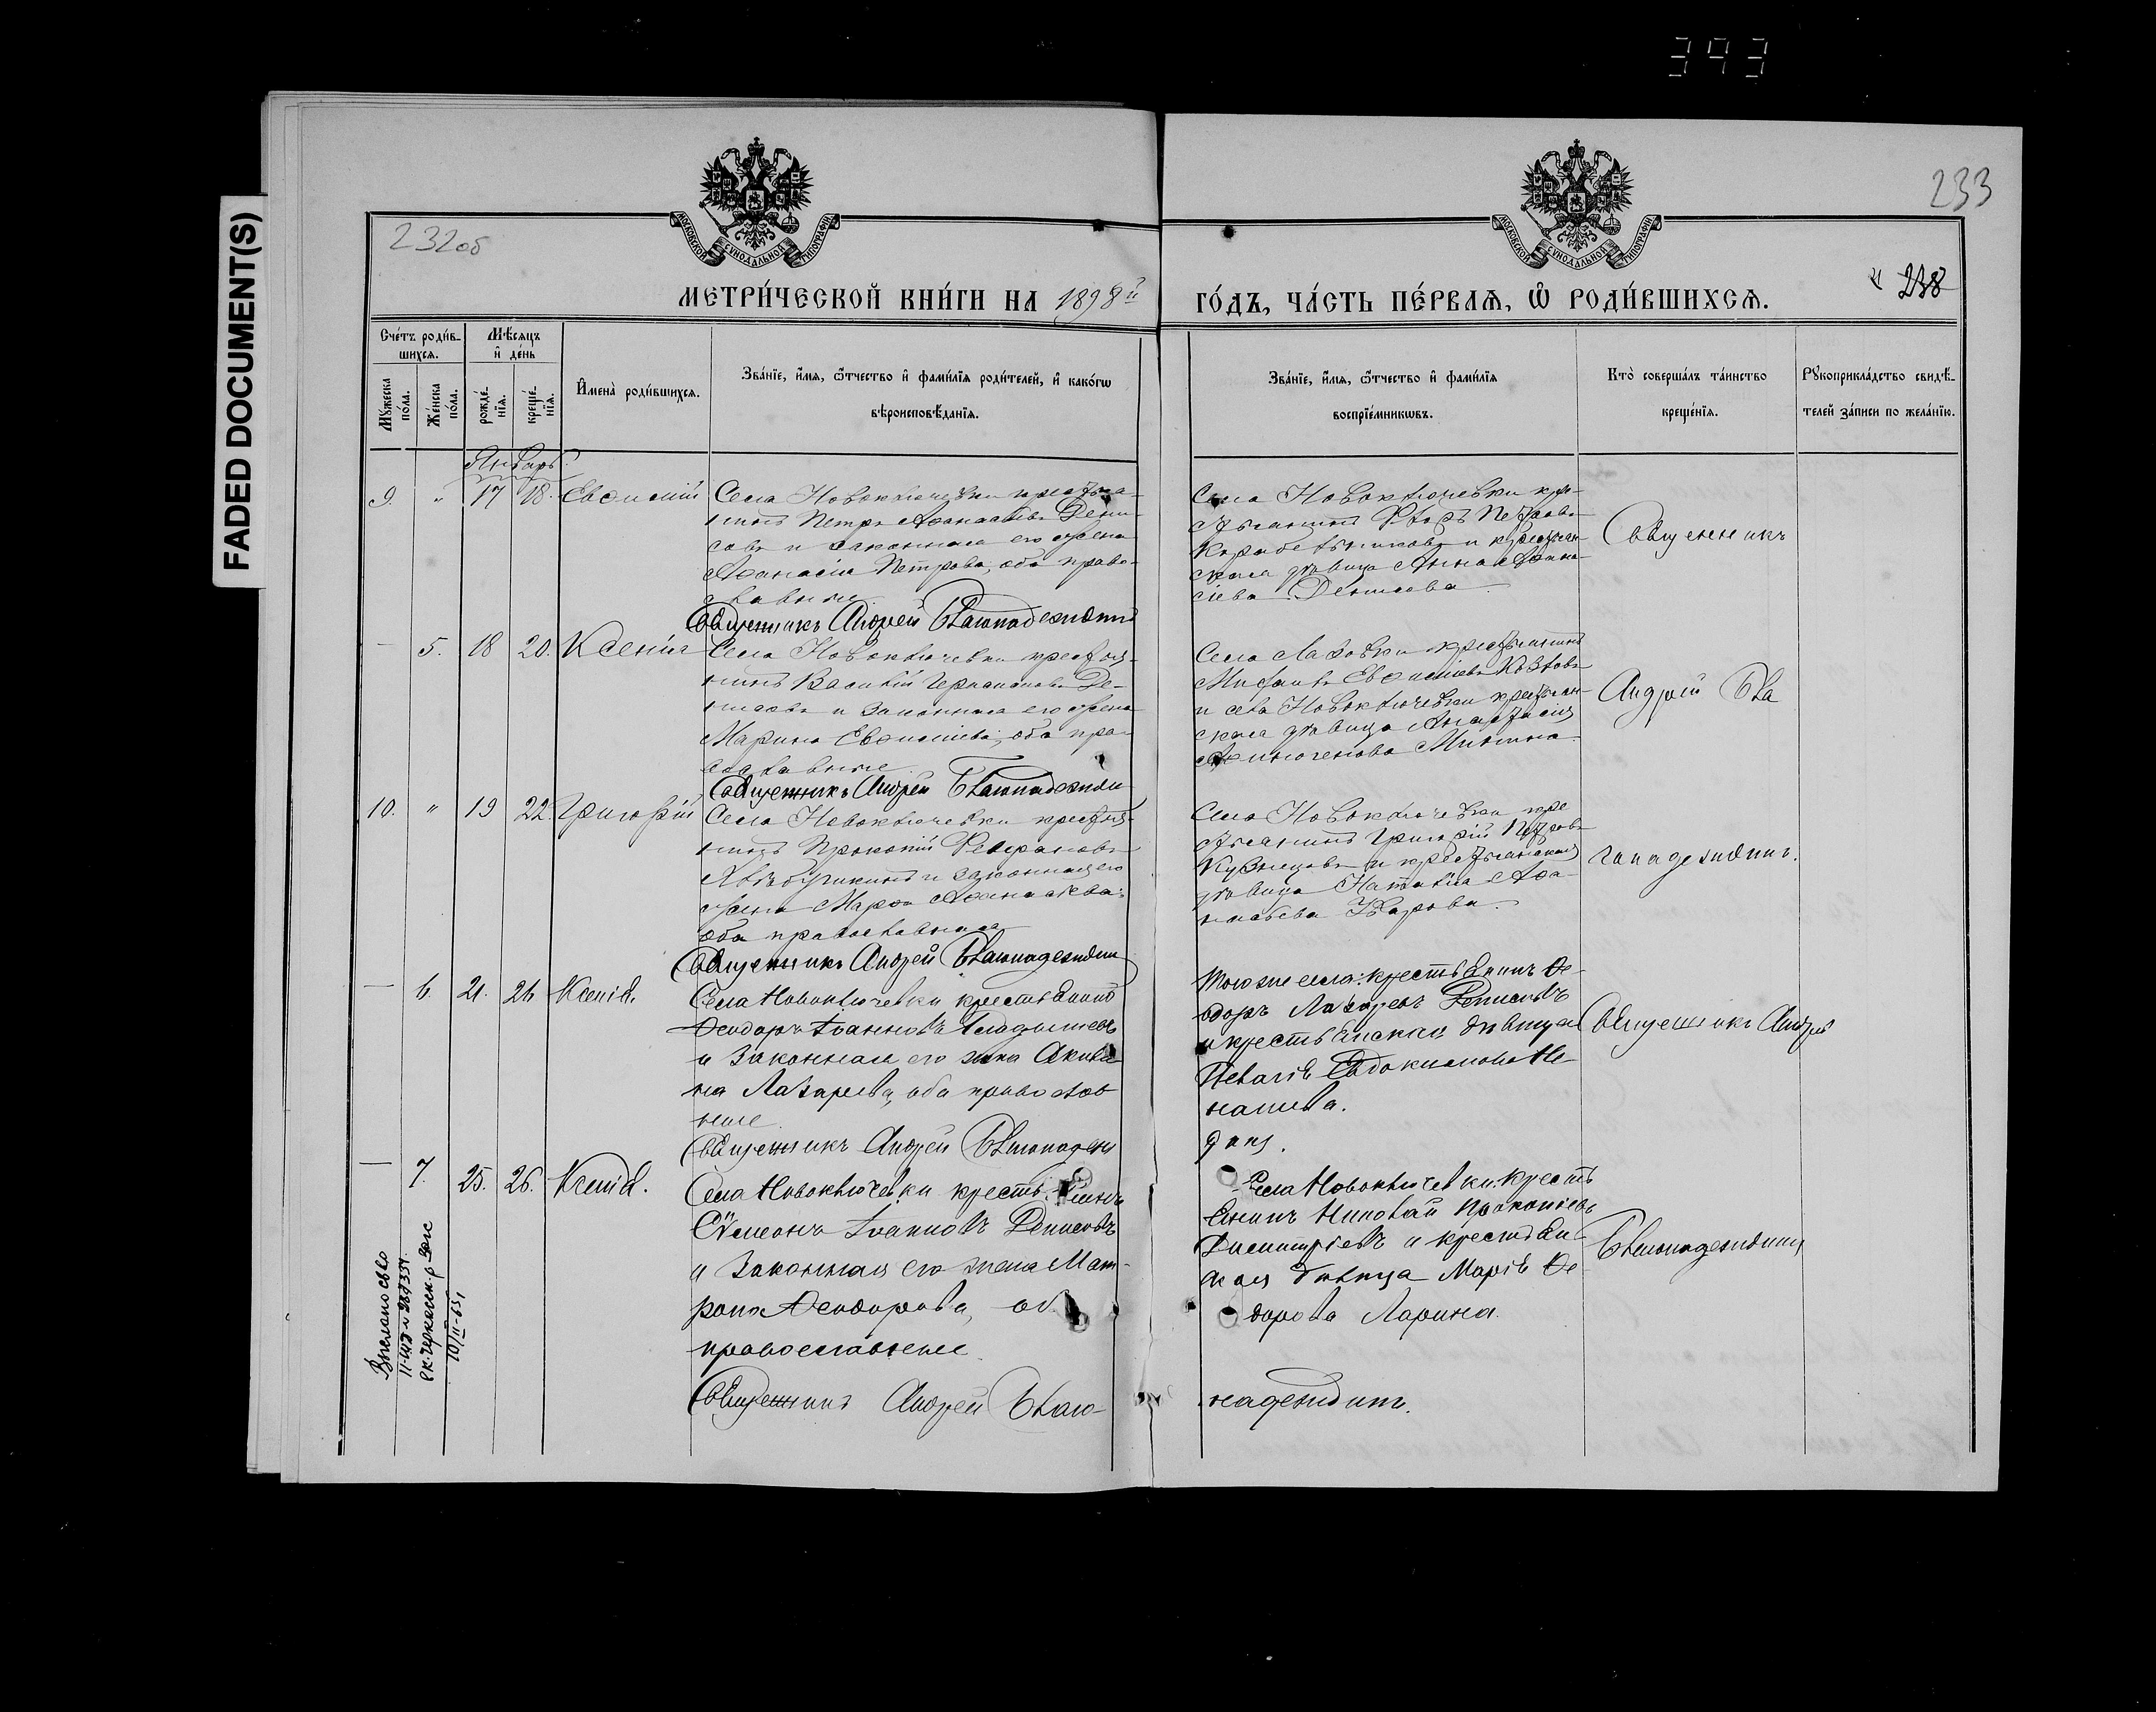 393
FADED DOCUMENT(S)
233
232об
МОСКОВСКОЙ СУНОДАЛЬНОЙ ТИПОГРАФІИ
МОСКОВСКОЙ СУНОДАЛЬНОЙ ТИПОГРАФІИ
238
МЕТРИ́ЧЕСКОЙ КНИ́ГИ НА 1898й ГО́ДЪ, ЧА́СТЬ ПЕ́РВАѦ, Ѡ҆ РОДИ́ВШИХСѦ.
Сче́тъ роди́в-
шихсѧ.
Мѣ́сѧцъ
и҆ де́нь
Мꙋ́жеска
по́ла.
Же́нска
по́ла.
рожде́-
нїѧ.
креще́-
нїѧ.
И҆мена̀ роди́вшихсѧ.
Зва́нїе, и҆́мѧ, ѻ҆́тчество и҆ фами́лїѧ роди́телей, и҆ како́гѡ
вѣроисповѣ́данїѧ.
Зва́нїе, и҆́мѧ, ѻ҆́тчество и҆ фами́лїѧ
воспрїе́мникѡвъ.
Кто̀ соверша́лъ та́инство
креще́нїѧ.
Рꙋкоприкла́дство свидѣ́-
телей за́писи по жела́нїю.
Январь.
9. " 17 18. Евѳимій
Села Новоключевки крестья-
нинъ Петръ Аѳанасьевъ Дени-
совъ и законная его жена
Аѳанасія Петрова, оба право-
славные.
Священникъ Андрей Благонадеждинъ
Села Новоключевки кре-
стьянинъ Петровъ
Корабельниковъ и крестьян-
ская дѣвица Анна Аѳана-
сіева Денисова.
Священникъ
— 5. 18 20. Ксенія
Села Новоключевки крестья-
нинъ Василій Де-
нисовъ и законная его жена
Марина Евѳиміева, оба пра-
вославные.
Священникъ Андрей Благонадеждин
Села крестьянинъ
Евѳиміевъ Козловъ
и села Новоключевки крестьян-
ская дѣвица Анастасія
Минина.
Андрей Бла
10. " 19 22. Григорій
Села Новоключевки крестья-
нинъ Прокопій
и законная его
жена Марѳа Аѳанасьева;
оба православные
Священникъ Андрей Благонадеждин
Села Новоключевки кре
стьянинъ Григорій Петровъ
Кузнецовъ и крестьянская
дѣвица Наталія Аѳа-
насьева Уварова.
гонадеждинъ.
— 6. 21. 26 Ксенія.
Села Новоключевки крестьянинъ
Ѳеодоръ Іоанновъ
и законная его жена Акили-
на Лазарева, оба православ
ные.
Священникъ Андрей Благонадеж
Того же села: крестьянинъ Ѳе-
одоръ Лазаревъ Денисовъ
и крестьянская дѣвица
Пелагія Евдокимова Не-
нашева.
динъ.
Священникъ Андрей
— 7. 25. 26. Ксенія.
Села Новоключевки крестьянинъ
Сѵмеонъ Іоанновъ Денисовъ
и законная его жена Мат-
рона Ѳеодорова, об
православные
Священникъ Андрей Благо-
Села Новоключевки. Кресть
янинъ Николай Прокопіевъ
Димитріевъ и крестьян-
ская дѣвица Марія Ѳе-
дорова Ларина.
надеждинъ.
Благонадеждинъ
Выслано св-во
10/II-63г